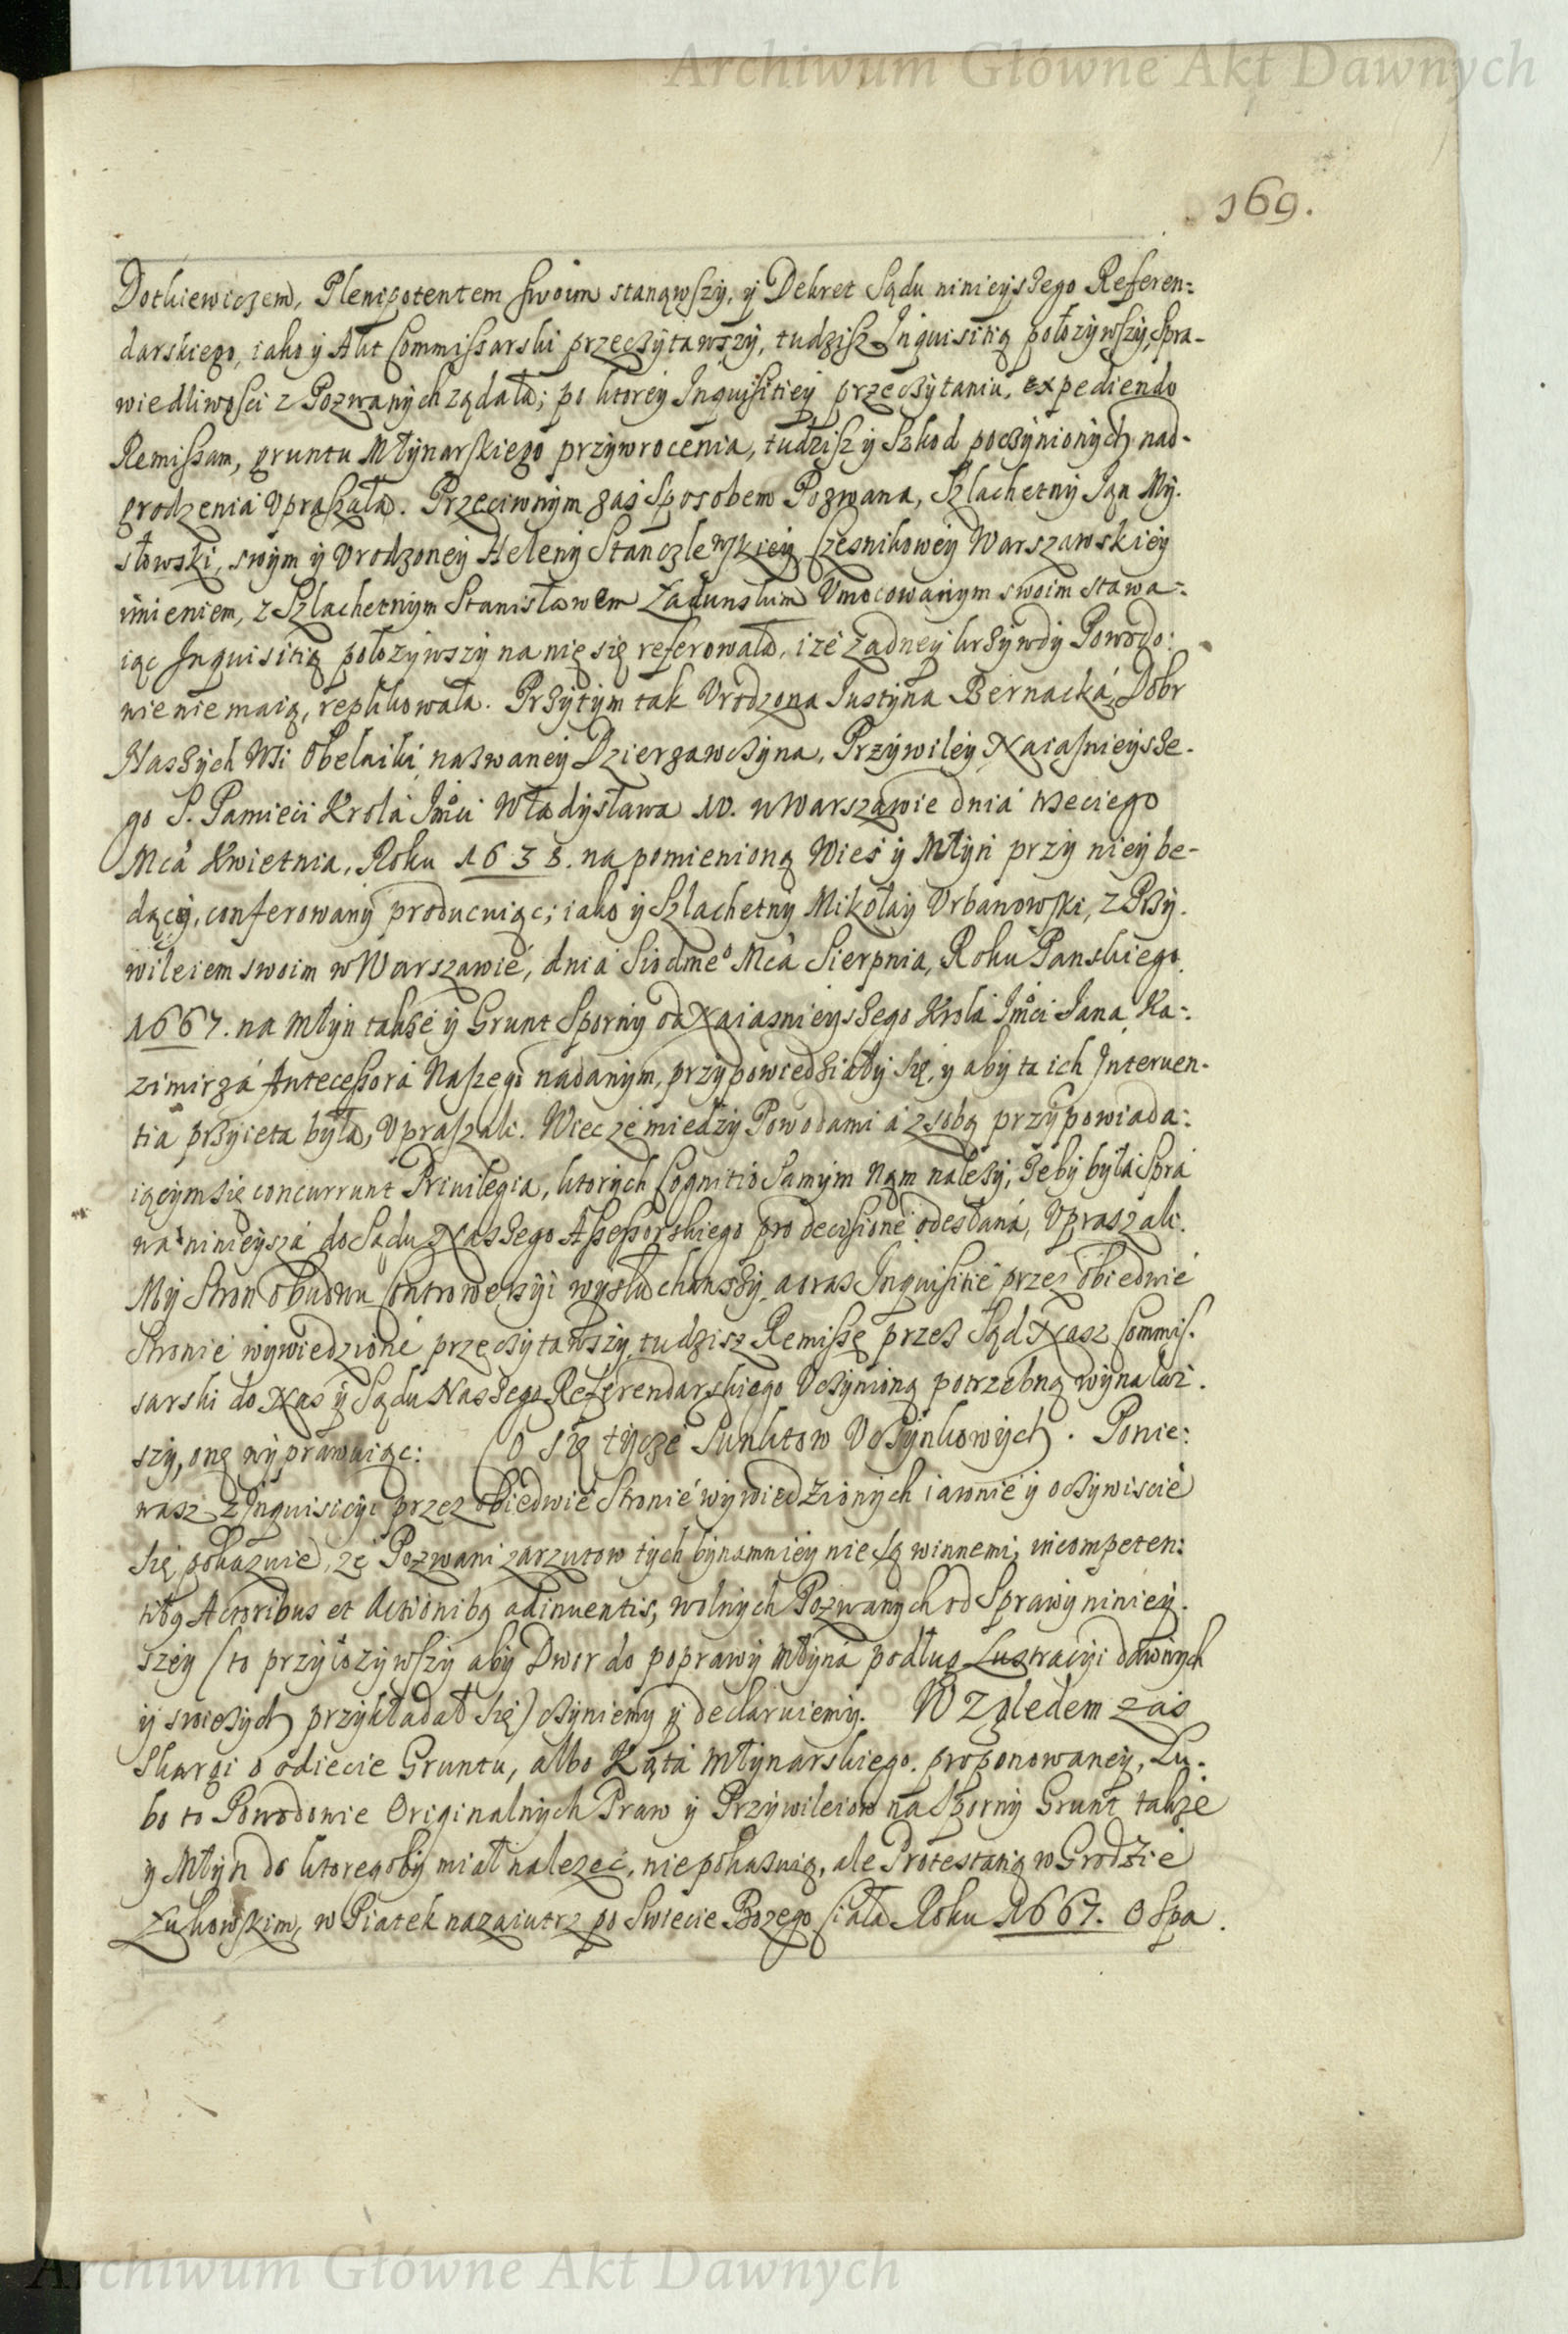 Archiwum Główne Akt Dawnych
169.
Dotkiewiczem, Plenipotentem swoim stanąwszy, y Dekret Sądu ninieyszego Referen:
darskiego, iako y Akt Commissarski przeczytawszy, tudzisz Inquisitią położywszy, Spra-
wiedliwosci z Pozwanych ządała; po ktorey Inquisitiey przeczytaniu, expediendo
Remissam, gruntu Młynarskiego przywrocenia, tudzisz y Szkod poczynionych nad-
grodzenia Upraszała. Przeciwnym zaś Sposobem Pozwana, Szlachetny Jan My-
słowski, swym y Urodzoney Heleny Stanczlewskiey Czesnikowey Warszawskiey
imieniem, z Szlachetnym Stanisławem Zadunskim Umocowanym swoim stawa:
iąc Inquisitią położywszy na nię się referowała, i ze zadney krzywdy Powodo:
wie nie maią, replikowała. Przytym tak Urodzona Justyna Bernacka, Dobr
Naszych Wsi Obelniki nazwaney Dzierzawczyna, Przywiley Naiasnieysze-
go S. Pamieci Krola Jmci Władysława IV. w Warszawie dnia trzeciego
Mca Kwietnia, Roku 1638. na pomienioną Wieś y Młyn przy niey be-
dący, conferowany producuiąc; iako y Szlachetny Mikołay Urbanowski, z Przy-
wileiem swoim w Warszawie, dnia Siodmeo Mca Sierpnia, Roku Panskiego
1667. na Młyn takze y Grunt Sporny od Naiasnieyszego Krola Jmci Jana Ka:
zimirza Antecessora Naszego nadanym, przypowiedziały się, y aby ta ich Interuen-
tia przyieta była, Upraszali. Wiec ze miedzy Powodami a z sobą przypowiada:
iącym się concurrunt Privilegia, ktorych Cognitio Samym Nam należy, żeby była Spra
wa ninieysza do Sądu Naszego Assessorskiego pro decisione odesłana, Upraszali.
My Stron Obudwu Controwersyi wysłuchawszy, a oraz Inquisitie przez obiedwie
Stronie wywiedzione przeczytawszy, tudzisz Remissę przez Sąd Nasz Commis-
sarski do Nas y Sądu Naszego Referendarskiego Uczynioną potrzebną wynalaz-
szy, onę wyprawuiąc: Co Się tycze Punktow Uczynkowych. Ponie:
wasz z Inquisicyi przez obiedwie Stronie wywiedzionych iawnie y oczywiscie
się pokazuie, ze Pozwani zarzutow tych bynamniey nie są winnemi, incompeten:
tibq Actoribus et Actionibq adinuentis, wolnych Pozwanych od Sprawy niniey-
szey (to przyłozywszy aby Dwor do poprawy młyna podług Lustracyi dawnych
y swieżych przykładał się) czyniemy y declaruiemy. Względem zaś
Skargi o odiecie Gruntu, albo Kąta Młynarskiego proponowaney, Lu-
bo to Powodowie Originalnych Praw y Przywileiow na Sporny Grunt także
y Młyn do ktoregoby miał nalezeć, nie pokazuią, ale Protestatią w Grodzie
Łukowskim, w Piątek nazaiutrz po Swiecie Bozego Ciała Roku 1667. O Spa.
Archiwum Główne Akt Dawnych